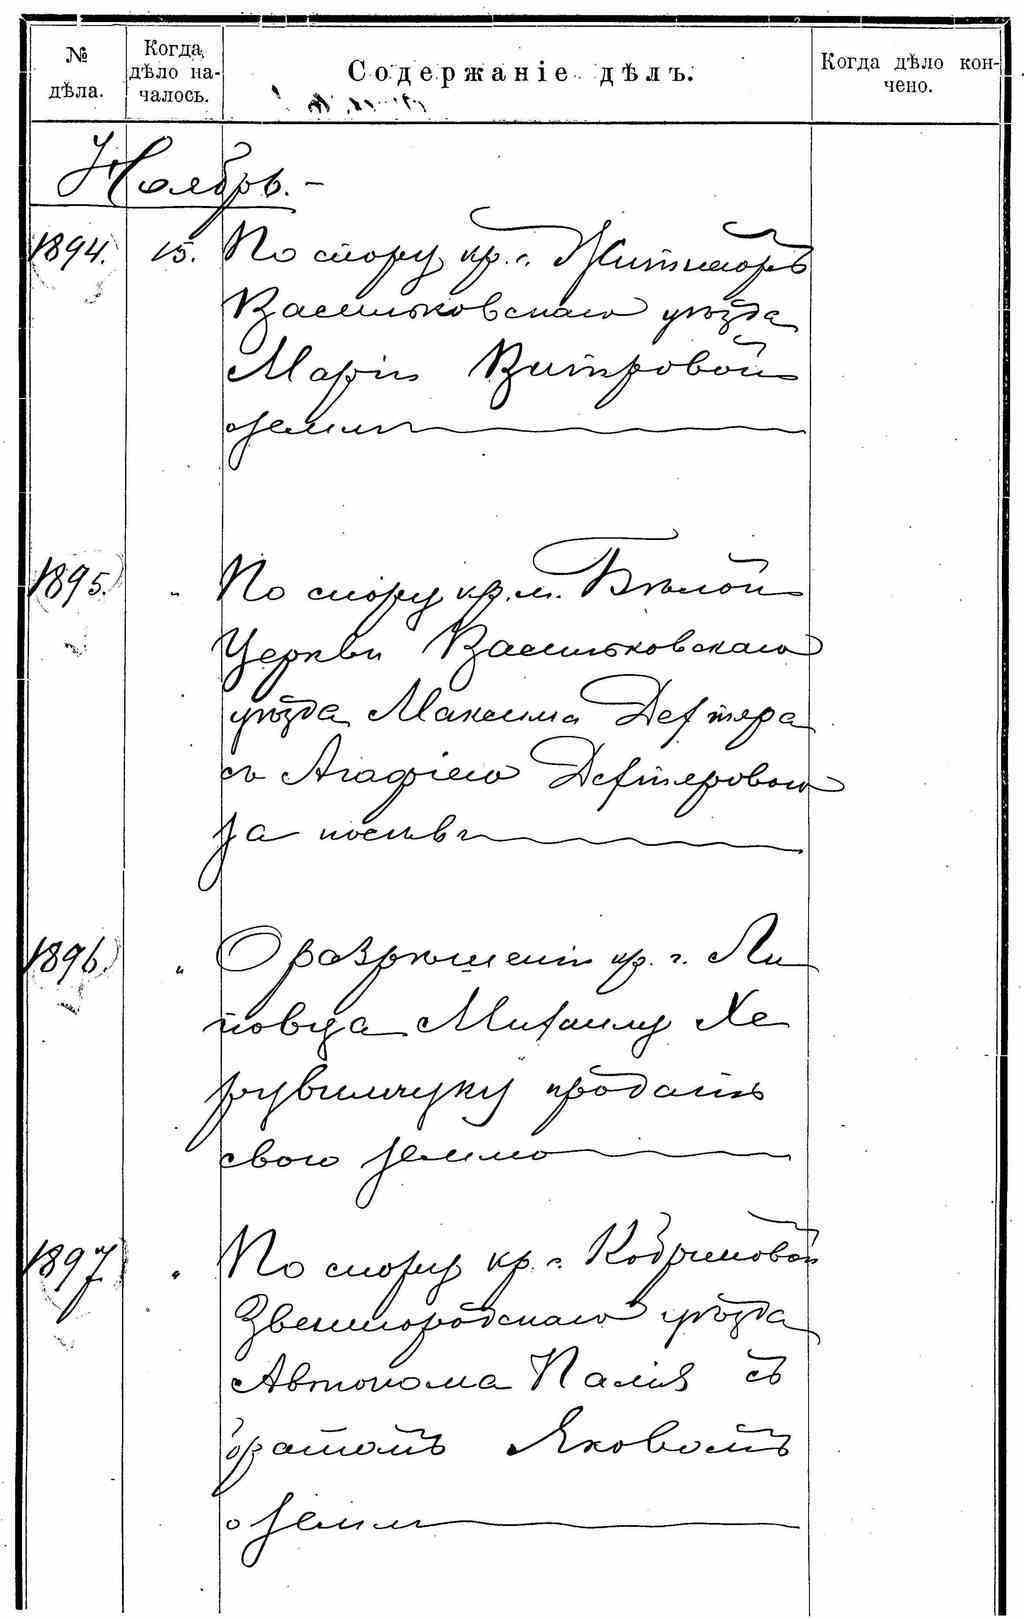 № дѣла.
Когда дѣло началось.
Содержаніе дѣлъ.
Когда дѣло кончено.
Ноябрь.-
1894. 15. По спору кр. с. Житногоръ
Васильковскаго уѣзда
Маріи Витровой
о земли
1895. " По спору кр. м. Бѣлой
Церкви Васильковскаго
уѣзда Максима Дехтяра
съ Агафіею Дехтяровою
за посѣвъ
1896. " О разрѣшеніи кр. г. Ли
повца Михаилу Хе
рувимчуку продать
свою землю
1897 " По спору кр. с. Кобриновой
Звенигородскаго уѣзда
Автонома Палія съ
братомъ Яковомъ
о земли